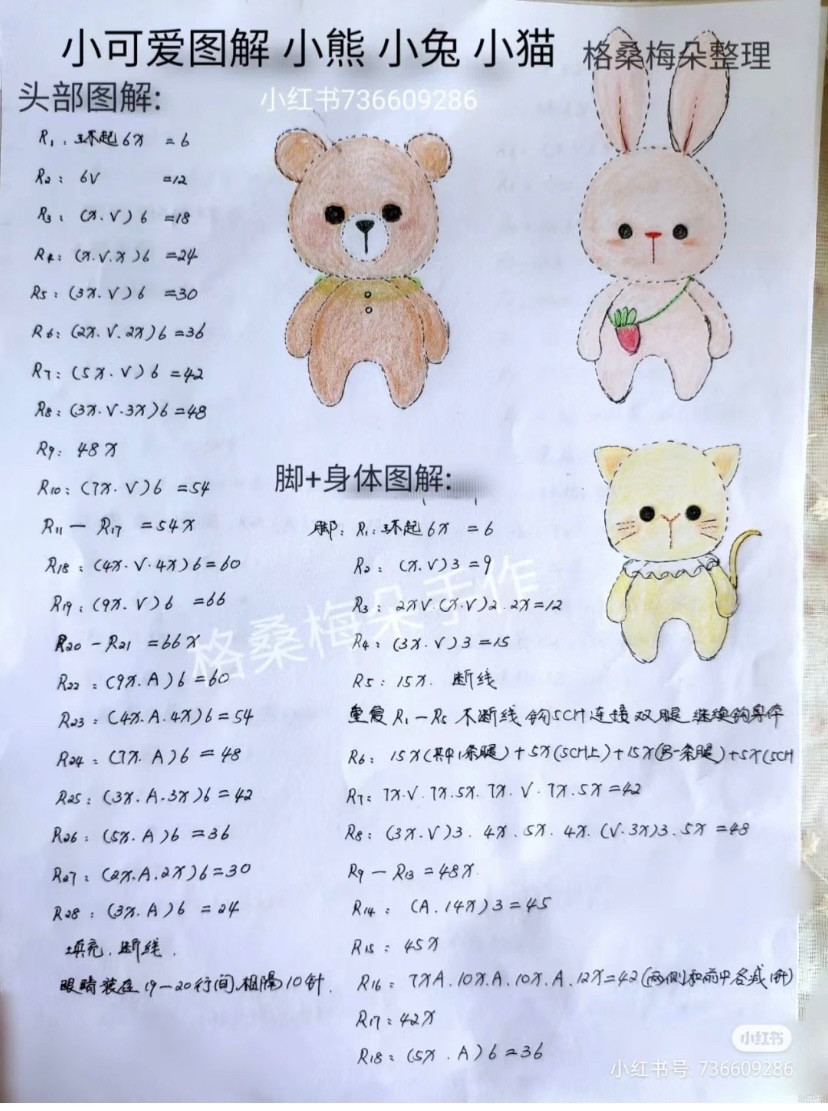 小可爱图解 小熊 小兔 小猫 格桑梅朵整理
小红书736609286
头部图解:
R1: 环起6X =6
R2: 6V =12
R3: (X.V)6 =18
R4: (X.V.X)6 =24
R5: (3X.V)6 =30
R6: (2X.V.2X)6 =36
R7: (5X.V)6 =42
R8: (3X.V.3X)6 =48
R9: 48X
R10: (7X.V)6 =54
R11 — R17 =54X
R18: (4X.V.4X)6 =60
R19: (9X.V)6 =66
R20 - R21 =66X
R22: (9X.A)6 =60
R23: (4X.A.4X)6 =54
R24: (7X.A)6 =48
R25: (3X.A.3X)6 =42
R26: (5X.A)6 =36
R27: (2X.A.2X)6 =30
R28: (3X.A)6 =24
填充.断线.
眼睛装在19—20行间.相隔10针.
脚+身体图解:
脚: R1: 环起6X =6
R2: (X.V)3 =9
R3: 2XV.(X.V)2.2X=12
R4: (3X.V)3 =15
R5: 15X. 断线
重复R1—R5 不断线 钩5CH连接双腿 继续钩身体
R6: 15X(其中1条腿)+5X(5CH上)+15X(另一条腿)+5X(5CH
R7: 7X.V.7X.5X.7X.V.7X.5X=42
R8: (3X.V)3.4X.5X.4X.(V.3X)3.5X =48
R9 — R13 =48X
R14: (A.14X)3=45
R15: 45X
R16: 7XA.10X.A.10X.A.12X=42(两侧和前中各减1针)
R17: 42X
R18: (5X.A)6=36
格桑梅朵手作
小红书
小红书号: 736609286